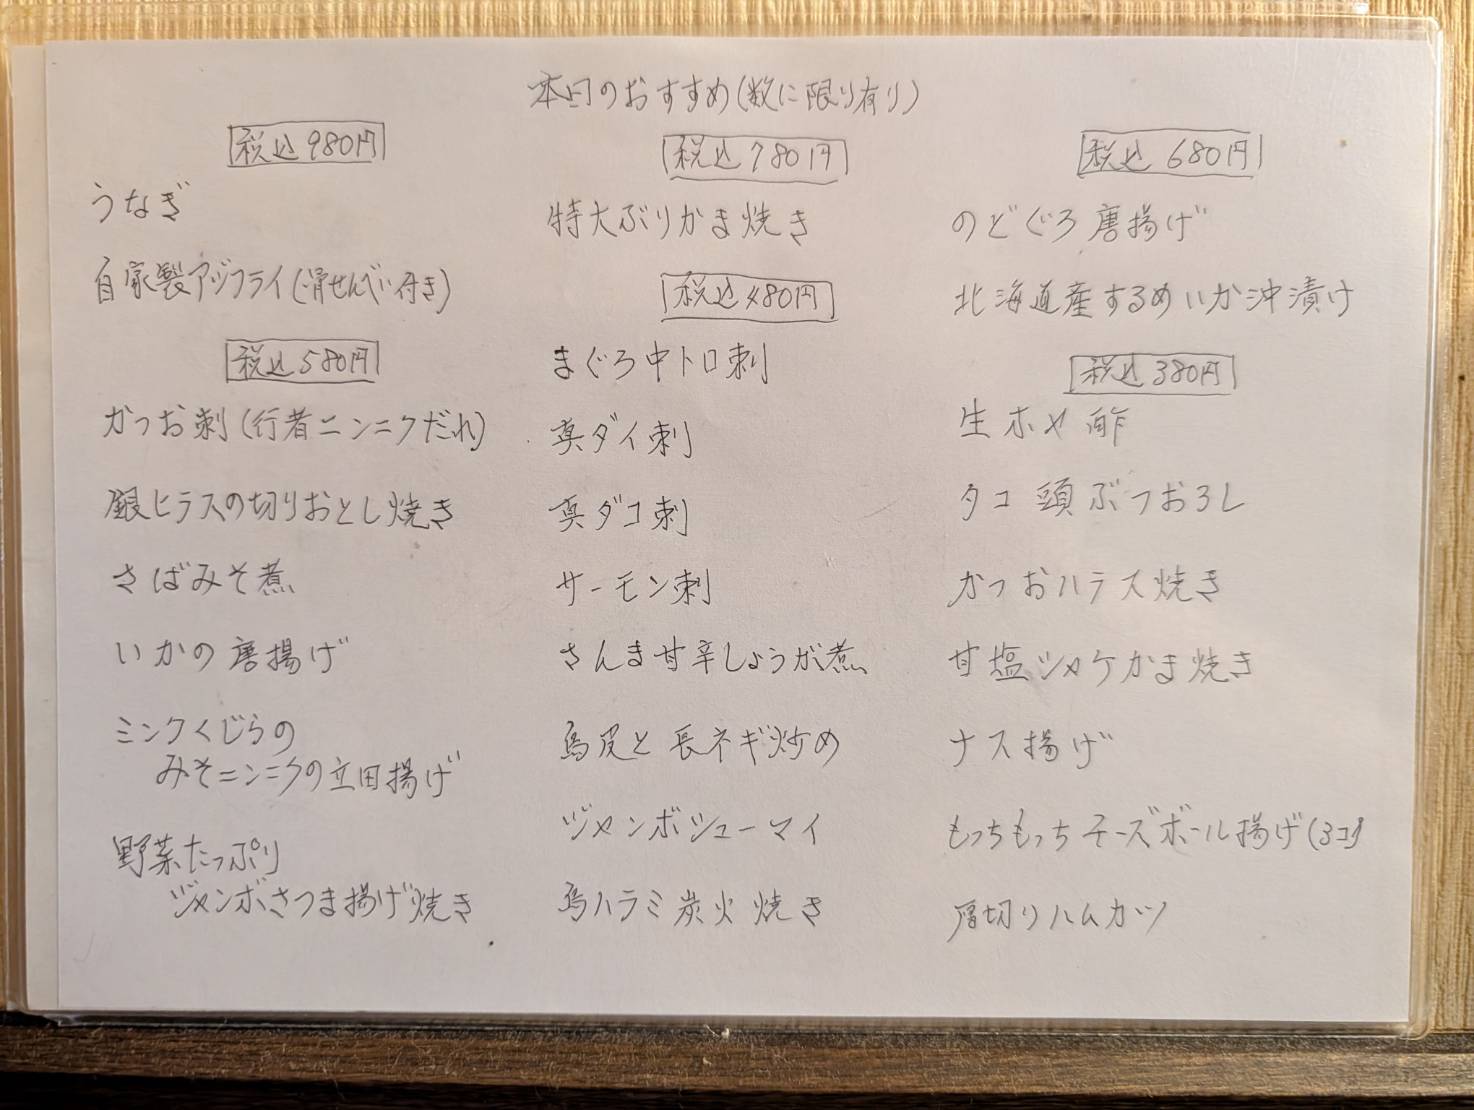 本日のおすすめ(数に限り有り)
税込980円
うなぎ
自家製アジフライ(骨せんべい付き)
税込580円
かつお刺(行者ニンニクだれ)
銀ヒラスの切りおとし焼き
さばみそ煮
いかの唐揚げ
ミンクくじらの
みそニンニクの立田揚げ
野菜たっぷり
ジャンボさつま揚げ焼き
税込780円
特大ぶりかま焼き
税込480円
まぐろ中トロ刺
真ダイ刺
真ダコ刺
サーモン刺
さんま甘辛しょうが煮
鳥皮と長ネギ炒め
ジャンボシューマイ
鳥ハラミ炭火焼き
税込680円
のどぐろ唐揚げ
北海道産するめいか沖漬け
税込380円
生ホヤ酢
タコ頭ぶつおろし
かつおハラス焼き
甘塩シャケかま焼き
ナス揚げ
もっちもっちチーズボール揚げ(3コ)
厚切りハムカツ